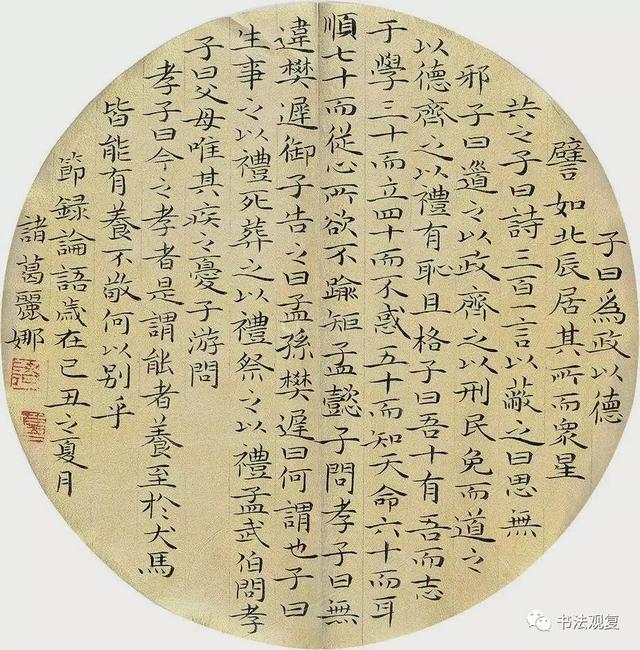 子曰為政以德
譬如北辰居其所而衆星
共之子曰詩三百一言以蔽之曰思無
邪子曰道之以政齊之以刑民免而道之
以德齊之以禮有恥且格子曰吾十有吾而志
于學三十而立四十而不惑五十而知天命六十而耳
順七十而從心所欲不踰矩孟懿子問孝子曰無
違樊遲御子告之曰孟孫樊遲曰何謂也子曰
生事之以禮死葬之以禮祭之以禮孟武伯問孝
子曰父母唯其疾之憂子游問
孝子曰今之孝者是謂能者養至於犬馬
皆能有養不敬何以別乎
節録論語歲在己丑之夏月
諸葛麗娜
书法观复